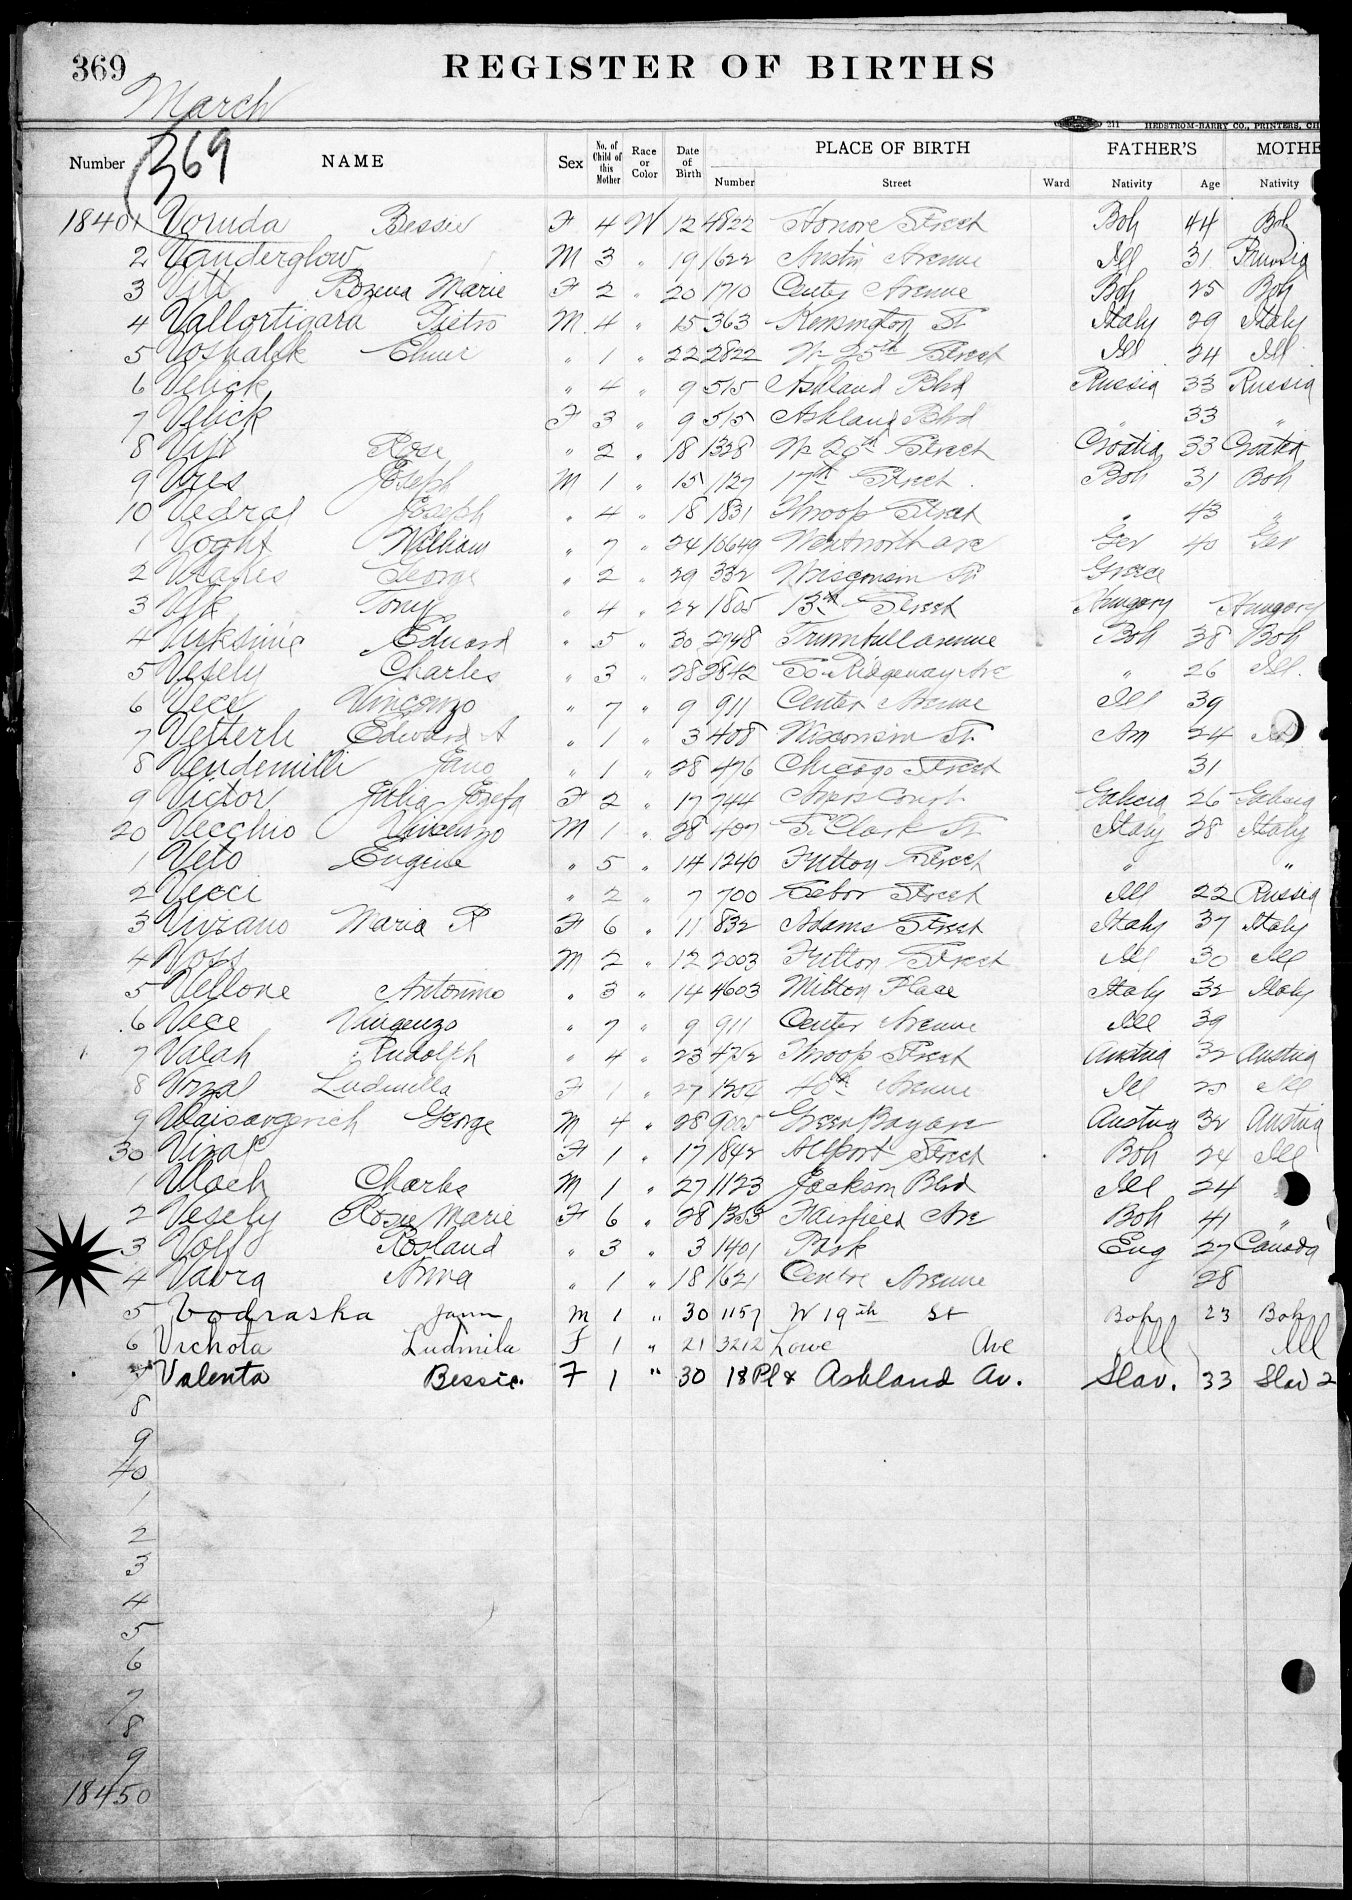 369 REGISTER OF BIRTHS
March
211 HEDSTROM-BARRY CO., PRINTERS, CHI
369
Number NAME Sex No. of Child of this Mother Race or Color Date of Birth PLACE OF BIRTH FATHER'S MOTHE
Number Street Ward Nativity Age Nativity
18401 Voruda Bessie F 4 W 12 4822 Honore Street Boh 44 Boh
2 Vanderglow M 3 " 19 1622 Austin Avenue Ill 31 Prussia
3 Vitt Bozena Marie F 2 " 20 1710 Center Avenue Boh 25 Boh
4 Vallortigara Pietro M 4 " 15 363 Kensington St Italy 29 Italy
5 Voshalik Elmer " 1 " 22 2822 W 25th Street Ill 24 Ill
6 Velick " 4 " 9 515 Ashland Blvd Russia 33 Russia
7 Velick F 3 " 9 515 Ashland Blvd " 33 "
8 Rose " 2 " 18 1328 W 20th Street Croatia 33 Croatia
9 Vres Joseph M 1 " 15 1127 17th Street Boh 31 Boh
10 Vedral Joseph " 4 " 18 1831 Throop Street " 43 "
1 Voght William " 7 " 24 10649 Wentworth ave Ger 40 Ger
2 Vlahes George " 2 " 29 332 Wisconsin St Greece
3 Vlk Tony " 4 " 22 1805 13th Street Hungary Hungary
4 Edward " 5 " 30 2748 Trumbull avenue Boh 38 Boh
5 Vesely Charles " 3 " 28 2842 So Ridgeway Ave " 26 Ill.
6 Vece Vincenzo " 7 " 9 911 Center Avenue Ill 39
7 Vetterli Edward A " 1 " 3 408 Wisconsin St Am 24
8 Vendemilli " 1 " 28 476 Chicago Street 31
9 Victor Julia Jozefa F 2 " 17 744 Court Galicia 26 Galicia
20 Vecchio Vincenzo M 1 " 28 407 S. Clark St Italy 28 Italy
1 Veto Eugine " 5 " 14 1240 Fulton Street " "
2 Vecci " 2 " 7 700 Tabor Street Ill 22 Russia
3 Vivzano Maria R F 6 " 11 832 Adams Street Italy 37 Italy
4 Voss M 2 " 12 2003 Fulton Street Ill 30 Ill
5 Vellone Antonino " 3 " 14 4603 Milton Place Italy 32 Italy
6 Vece Vingenzo " 7 " 9 911 Center Avenue Ill 39
7 Valah Rudolph " 4 " 23 4752 Throop Street Austria 32 Austria
8 Vrzal Ludmilla F 1 " 27 1354 40th Avenue Ill 25 Ill
9 George M 4 " 28 9005 Green Bay ave Austria 32 Austria
30 F 1 " 17 1842 Allport Street Boh 24 Ill
1 Vlach Charles M 1 " 27 1123 Jackson Blvd Ill 24
2 Vesely Rosie Marie F 6 " 28 1353 Fairfield Ave Boh 41 "
3 Volf Rosland " 3 " 3 1401 Park Eng 27 Canada
4 Vavra Anna " 1 " 18 1621 Centre Avenue 28
5 Vodraska John M 1 " 30 1157 W 19th St Boh 23 Boh
6 Vichota Ludmila F 1 " 21 3212 Lowe Ave Ill Ill
7 Valenta Bessie. F 1 " 30 18 Pl & Ashland Av. Slav. 33 Slav 2
8
9
40
1
2
3
4
5
6
7
8
9
18450